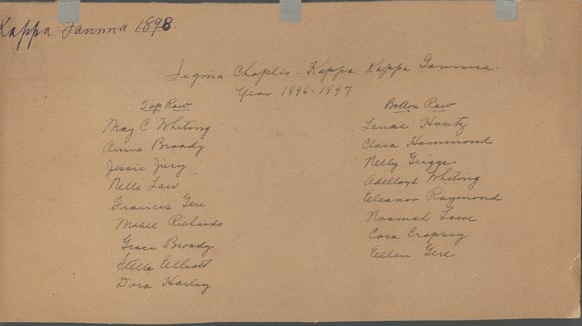 Kappa Gamma 1898.
Sigma Chapter - Kappa Kappa Gamma.
Year 1896-1897
Top Row
May C Whiting
Anna Broady
Jessie Jury
Nelle Law
Frances Gere
Mabel Richards
Grace Broady
Stella Elliott
Dora Harley
Bottom Row
Lenae Houtz
Clara Hammond
Nelly Griggs
Adelloyd Whiting
Eleanor Raymond
Noomah
Cora Cropsey
Ellen Gere